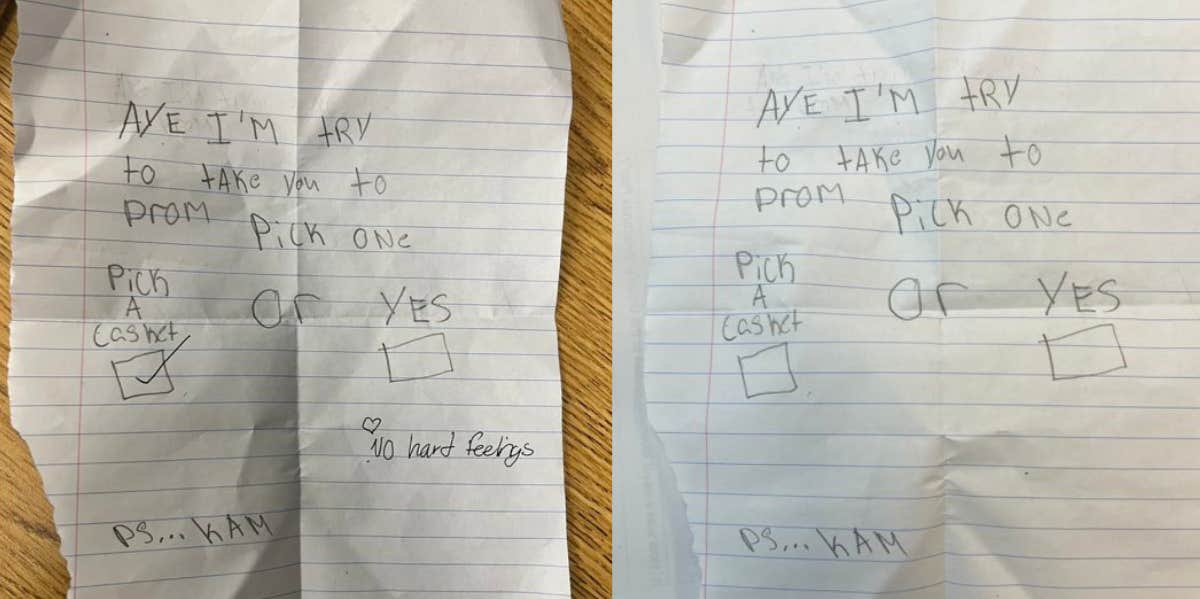 AYE I'M tRY
to tAKe you to
prom Pick ONe
Pick
A
Casket
or YES
♡
No hard feelings
PS... KAM
AYE I'M tRY
to tAKe you to
prom Pick ONe
Pick
A
Casket
or YES
PS... KAM